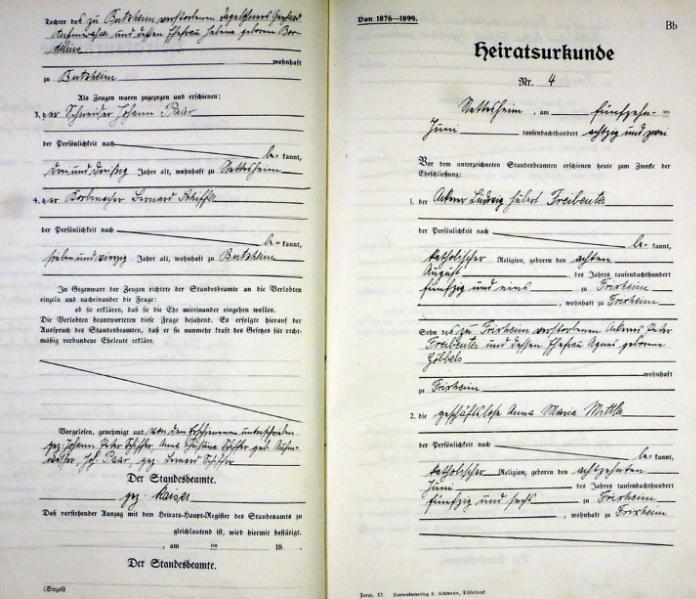 Tochter des zu Butzheim verstorbenen Tagelöhners Gerhard
und dessen Ehefrau Helena geborene
wohnhaft
zu Butzheim
Als Zeugen waren zugezogen und erschienen:
3. der Schneider Johann Paar
der Persönlichkeit nach
be- kannt,
drei und dreißig Jahre alt, wohnhaft zu Nettesheim
4. der Korbmacher Bernard Schiffer
der Persönlichkeit nach
be- kannt,
sieben und vierzig Jahre alt, wohnhaft zu Butzheim
In Gegenwart der Zeugen richtete der Standesbeamte an die Verlobten
einzeln und nacheinander die Frage:
ob sie erklären, daß sie die Ehe miteinander eingehen wollen.
Die Verlobten beantworteten diese Frage bejahend. Es erfolgte hierauf der
Ausspruch des Standesbeamten, daß er sie nunmehr kraft des Gesetzes für recht-
mäßig verbundene Eheleute erkläre.
Vorgelesen, genehmigt und von den Erschienenen unterschrieben
gez. Johann Peter Schiffer, Anna Christina Schiffer geb.
Joh. Paar, gez. Bernard Schiffer
Der Standesbeamte.
gez. Kaiser
Daß vorstehender Auszug mit dem Heirats-Haupt-Register des Standesamts zu
gleichlautend ist, wird hiermit bestätigt.
, am ten 18 .
Der Standesbeamte.
(Siegel)
Von 1876-1899.
Bb
Heiratsurkunde
Nr. 4
Nettesheim, am fünfzehn- ten
Juni tausendachthundert achtzig und zwei
Vor dem unterzeichneten Standesbeamten erschienen heute zum Zwecke der
Eheschließung:
1. der Ackerer Ludwig Hubert Freibeuter
der Persönlichkeit nach
be- kannt,
katholischer Religion, geboren den achten
August des Jahres tausendachthundert
fünfzig und eins zu Frixheim
, wohnhaft zu Frixheim
Sohn des zu Frixheim verstorbenen Ackerers Peter
Freibeuter und dessen Ehefrau Agnes geborene
Göbbels
wohnhaft
zu Frixheim
2. die geschäftslose Anna Maria
der Persönlichkeit nach
be- kannt,
katholischer Religion, geboren den achtzehnten
Juni des Jahres tausendachthundert
fünfzig und sechs zu Frixheim
, wohnhaft zu Frixheim
Form. 11.